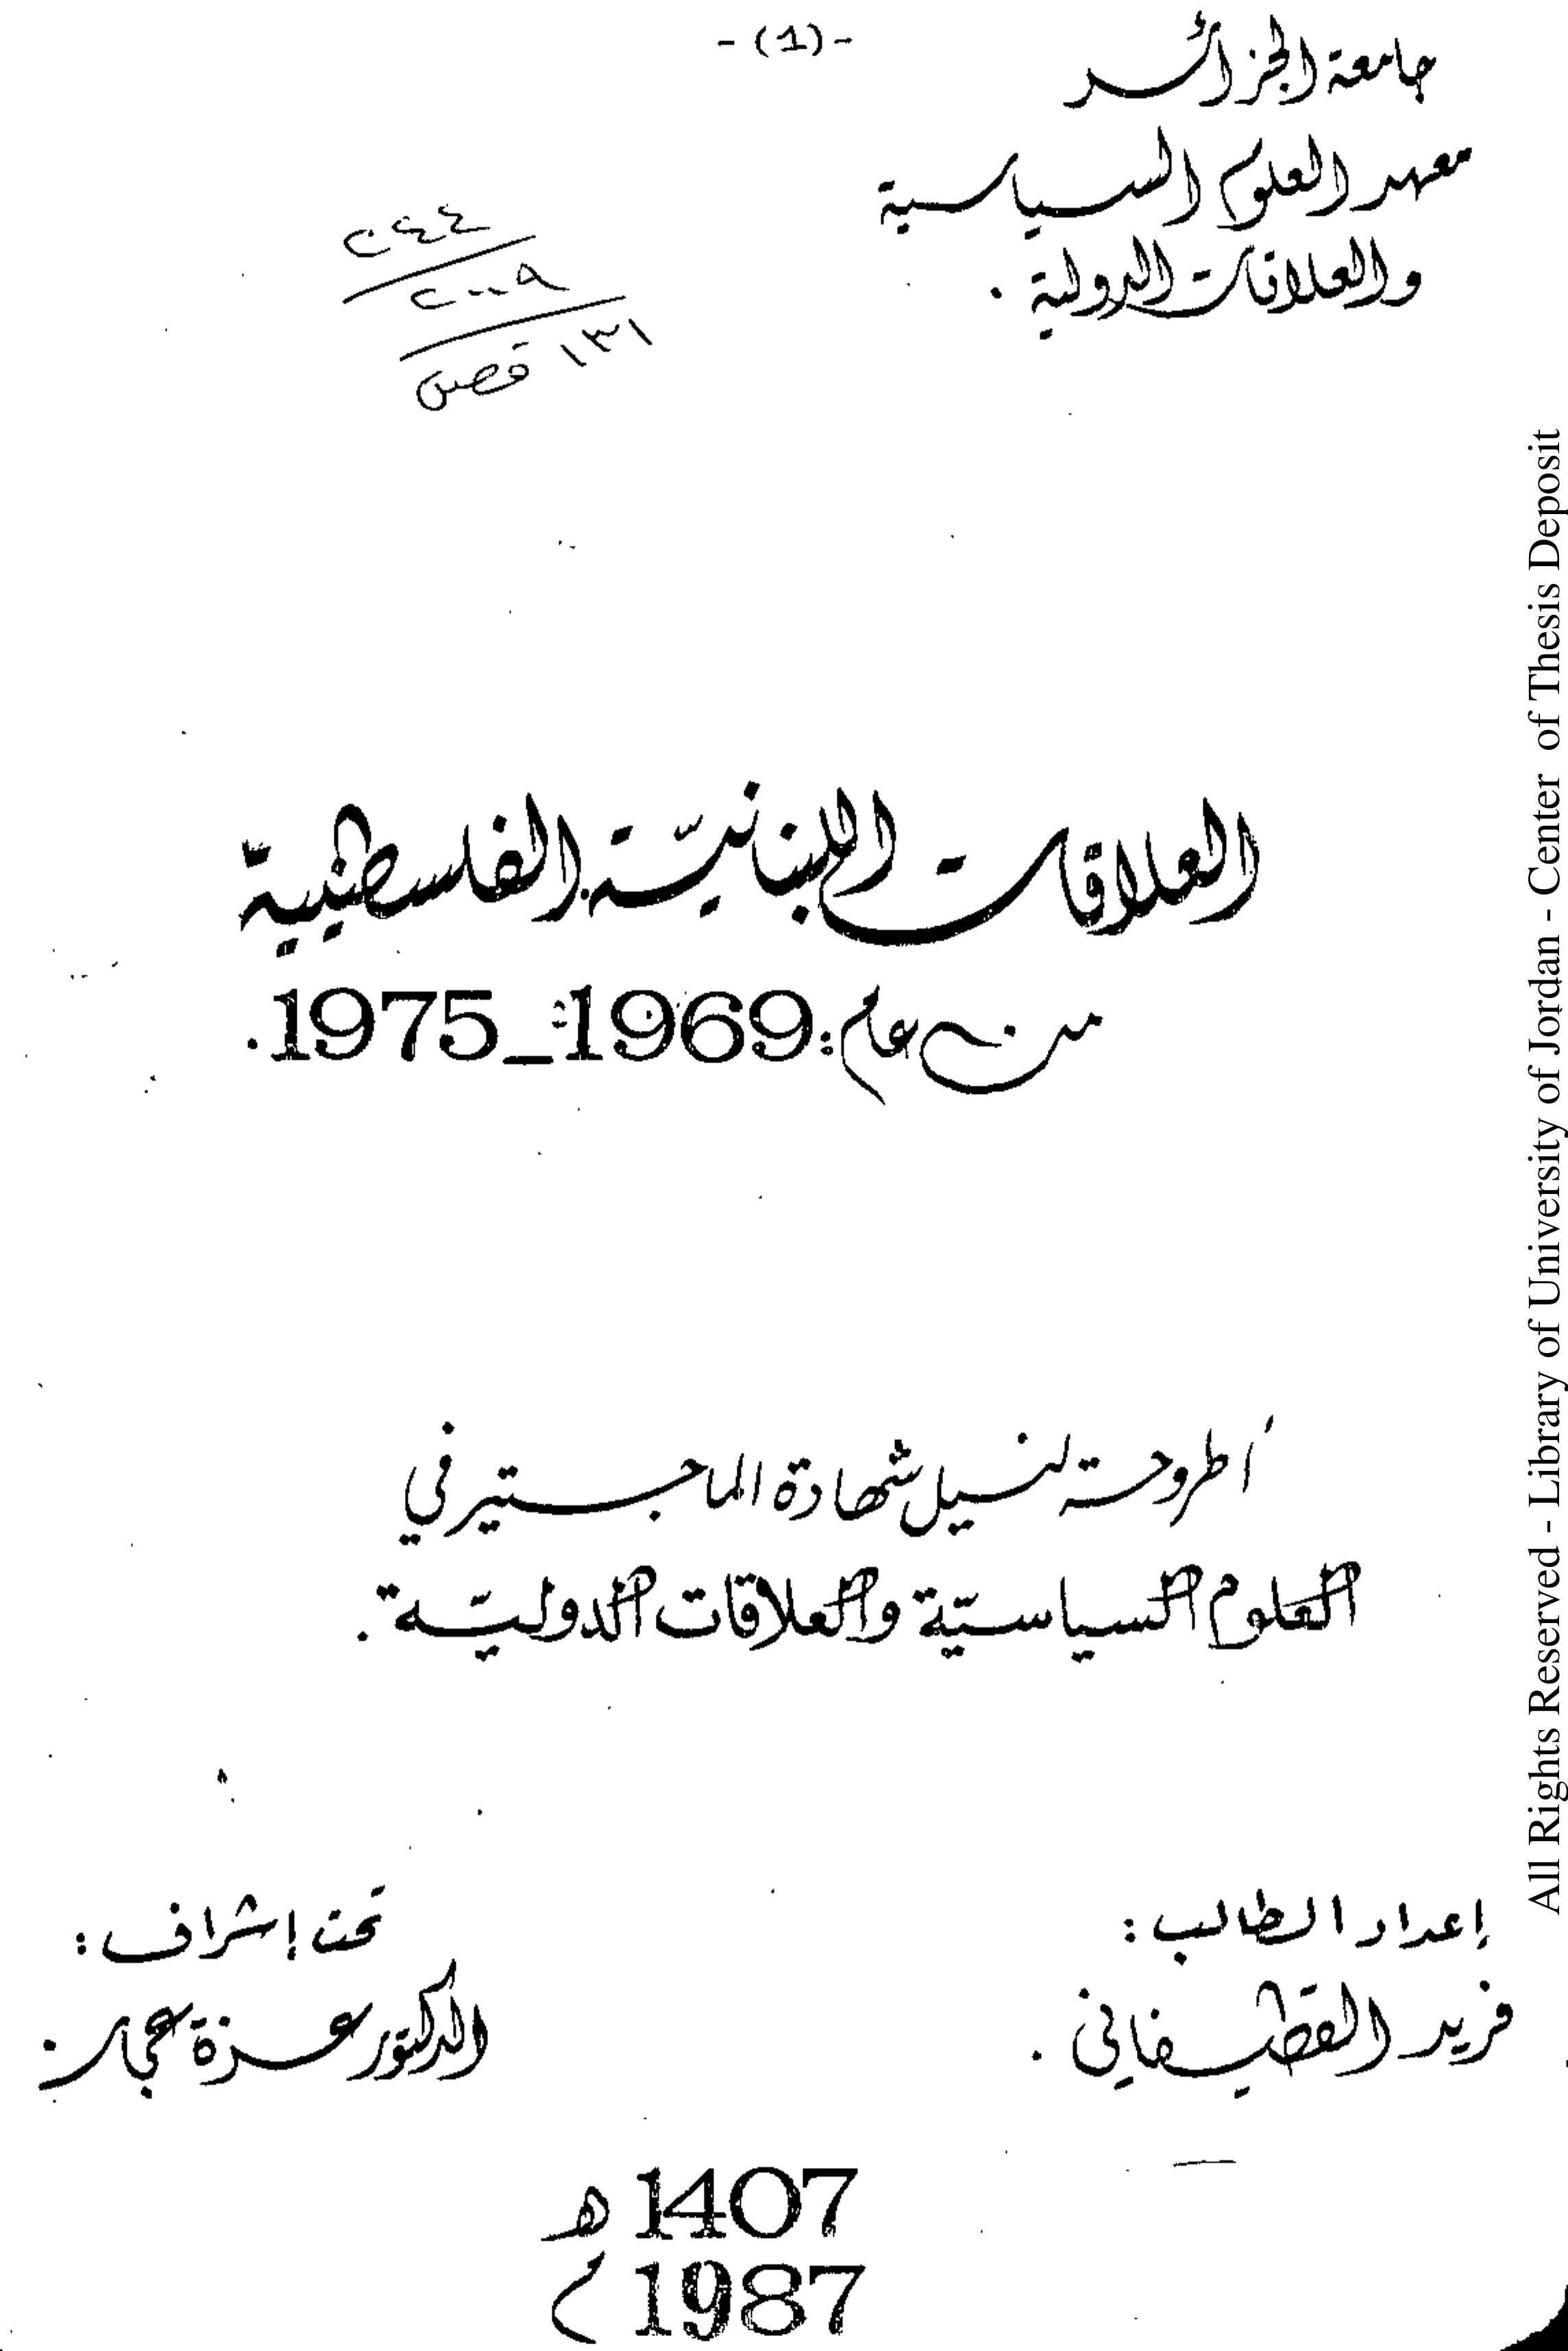 -(1)-
جامعة الجزائر
معهد العلوم السياسية
والعلاقات الدولية .
٢٤٤
٢٠٠٩
١٣١ قص
العلاقات اللبنانيّة الفلسطينيّة
من عام : 1969_1975.
أطروحة لنيل شهادة الماجستير في
العلوم السياسيّة والعلاقات الدوليّة .
إعداد الطالب :
فريد القطيفاني .
تحت إشراف :
الدكتور عزة عجان
1407 هـ
1987 م
All Rights Reserved - Library of University of Jordan - Center of Thesis Deposit